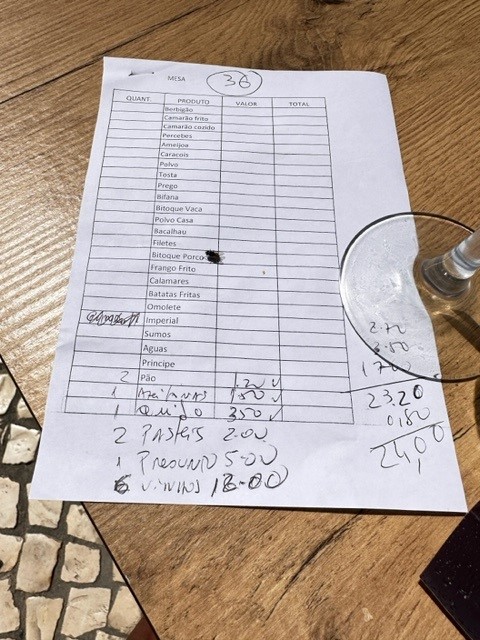 MESA 36
QUANT. PRODUTO VALOR TOTAL
Berbigão
Camarão frito
Camarão cozido
Percebes
Ameijoa
Caracois
Polvo
Tosta
Prego
Bifana
Bitoque Vaca
Polvo Casa
Bacalhau
Filetes
Bitoque Porco
Frango Frito
Calamares
Batatas Fritas
Omolete
Imperial
Sumos
Aguas
Principe
2 Pão 1.20
1 Azeitonas 1.50
1 Queijo 3.50
2 PASTEIS 2.00
1 PRESUNTO 5.00
6 VINHOS
23.20
0,80
24,00